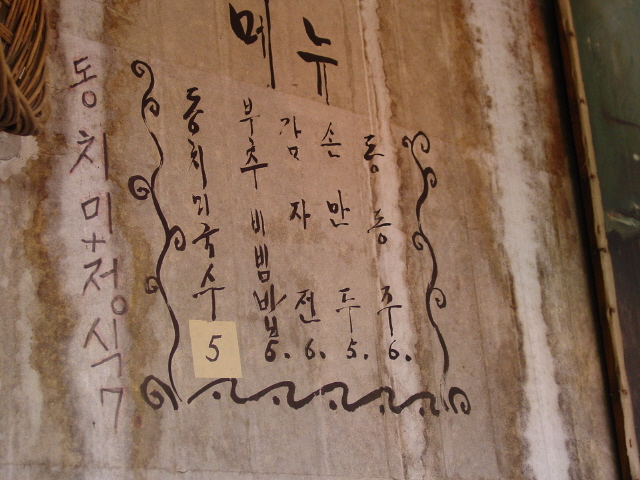 메뉴
동치미+정식 7
동치미국수 5
부추비빔밥 6.
감자전 6.
손만두 5.
동동주 6.